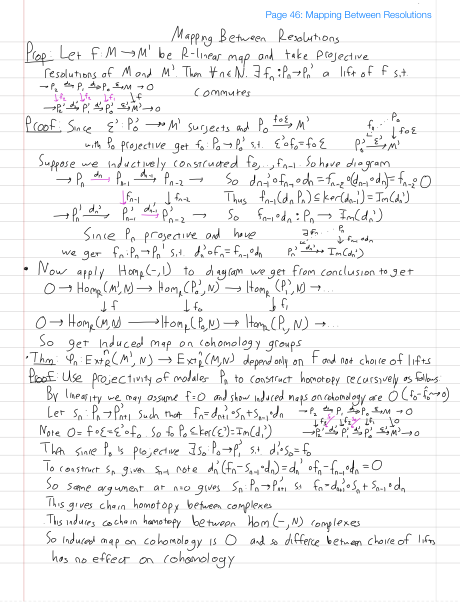 Page 46: Mapping Between Resolutions
Mapping Between Resolutions
Prop: Let f: M → M' be R-linear map and take projective
resolutions of M and M'. Then ∀n∈N. ∃ fₙ: Pₙ → Pₙ' a lift of f s.t.
→ P₂ →(d₂) P₁ →(d₁) P₀ →(ε) M → 0
↓f₂ ↓f₁ ↓f₀ ↓f
commutes
→ P₂' →(d₂') P₁' →(d₁') P₀' →(ε') M' → 0
Proof: Since ε': P₀' → M' surjects and P₀ →(f∘ε) M'
with P₀ projective get f₀: P₀ → P₀' s.t. ε'∘f₀ = f∘ε
f₀ P₀ ↓f∘ε
P₀' →(ε') M'
Suppose we inductively constructed f₀,...,fₙ₋₁. So have diagram
→ Pₙ →(dₙ) Pₙ₋₁ →(dₙ₋₁) Pₙ₋₂ → So dₙ₋₁'∘fₙ₋₁∘dₙ = fₙ₋₂∘(dₙ₋₁∘dₙ) = fₙ₋₂∘0
↓fₙ₋₁ ↓fₙ₋₂ Thus fₙ₋₁(dₙPₙ) ⊆ ker(dₙ₋₁') = Im(dₙ')
→ Pₙ' →(dₙ') Pₙ₋₁' →(dₙ₋₁') Pₙ₋₂' → So fₙ₋₁∘dₙ: Pₙ → Im(dₙ')
Since Pₙ projective and have
∃fₙ Pₙ ↓fₙ₋₁∘dₙ
we get fₙ: Pₙ → Pₙ' s.t. dₙ'∘fₙ = fₙ₋₁∘dₙ
Pₙ' →(dₙ') Im(dₙ')
• Now apply Hom_R(-,N) to diagram we get from conclusion to get
0 → Hom_R(M',N) → Hom_R(P₀',N) → Hom_R(P₁',N) → ...
↓f ↓f₀ ↓f₁
0 → Hom_R(M,N) → Hom_R(P₀,N) → Hom_R(P₁,N) → ...
So get induced map on cohomology groups
• Thm: φₙ: Extⁿ_R(M',N) → Extⁿ_R(M,N) depend only on f and not choice of lifts
Proof: Use projectivity of modules Pₙ to construct homotopy recursively as follows.
By linearity we may assume f=0 and show induced maps on cohomology are 0
Let sₙ: Pₙ → Pₙ₊₁' such that fₙ = dₙ₊₁'∘sₙ + sₙ₋₁∘dₙ
→ P₂ →(d₂) P₁ →(d₁) P₀ →(ε) M → 0
Note 0 = f∘ε = ε'∘f₀. So f₀ P₀ ⊆ ker(ε') = Im(d₁')
→ P₂' →(d₂') P₁' →(d₁') P₀' →(ε') M' → 0
Then since P₀ is projective ∃s₀: P₀ → P₁' s.t. d₁'∘s₀ = f₀
To construct sₙ given sₙ₋₁ note dₙ'(fₙ - sₙ₋₁∘dₙ) = dₙ'∘fₙ - fₙ₋₁∘dₙ = 0
So same argument at n=0 gives sₙ: Pₙ → Pₙ₊₁' s.t. fₙ = dₙ₊₁'∘sₙ + sₙ₋₁∘dₙ
This gives chain homotopy between complexes
This induces cochain homotopy between Hom(-,N) complexes
So induced map on cohomology is 0 and so differce between choice of lifts
has no effect on cohomology